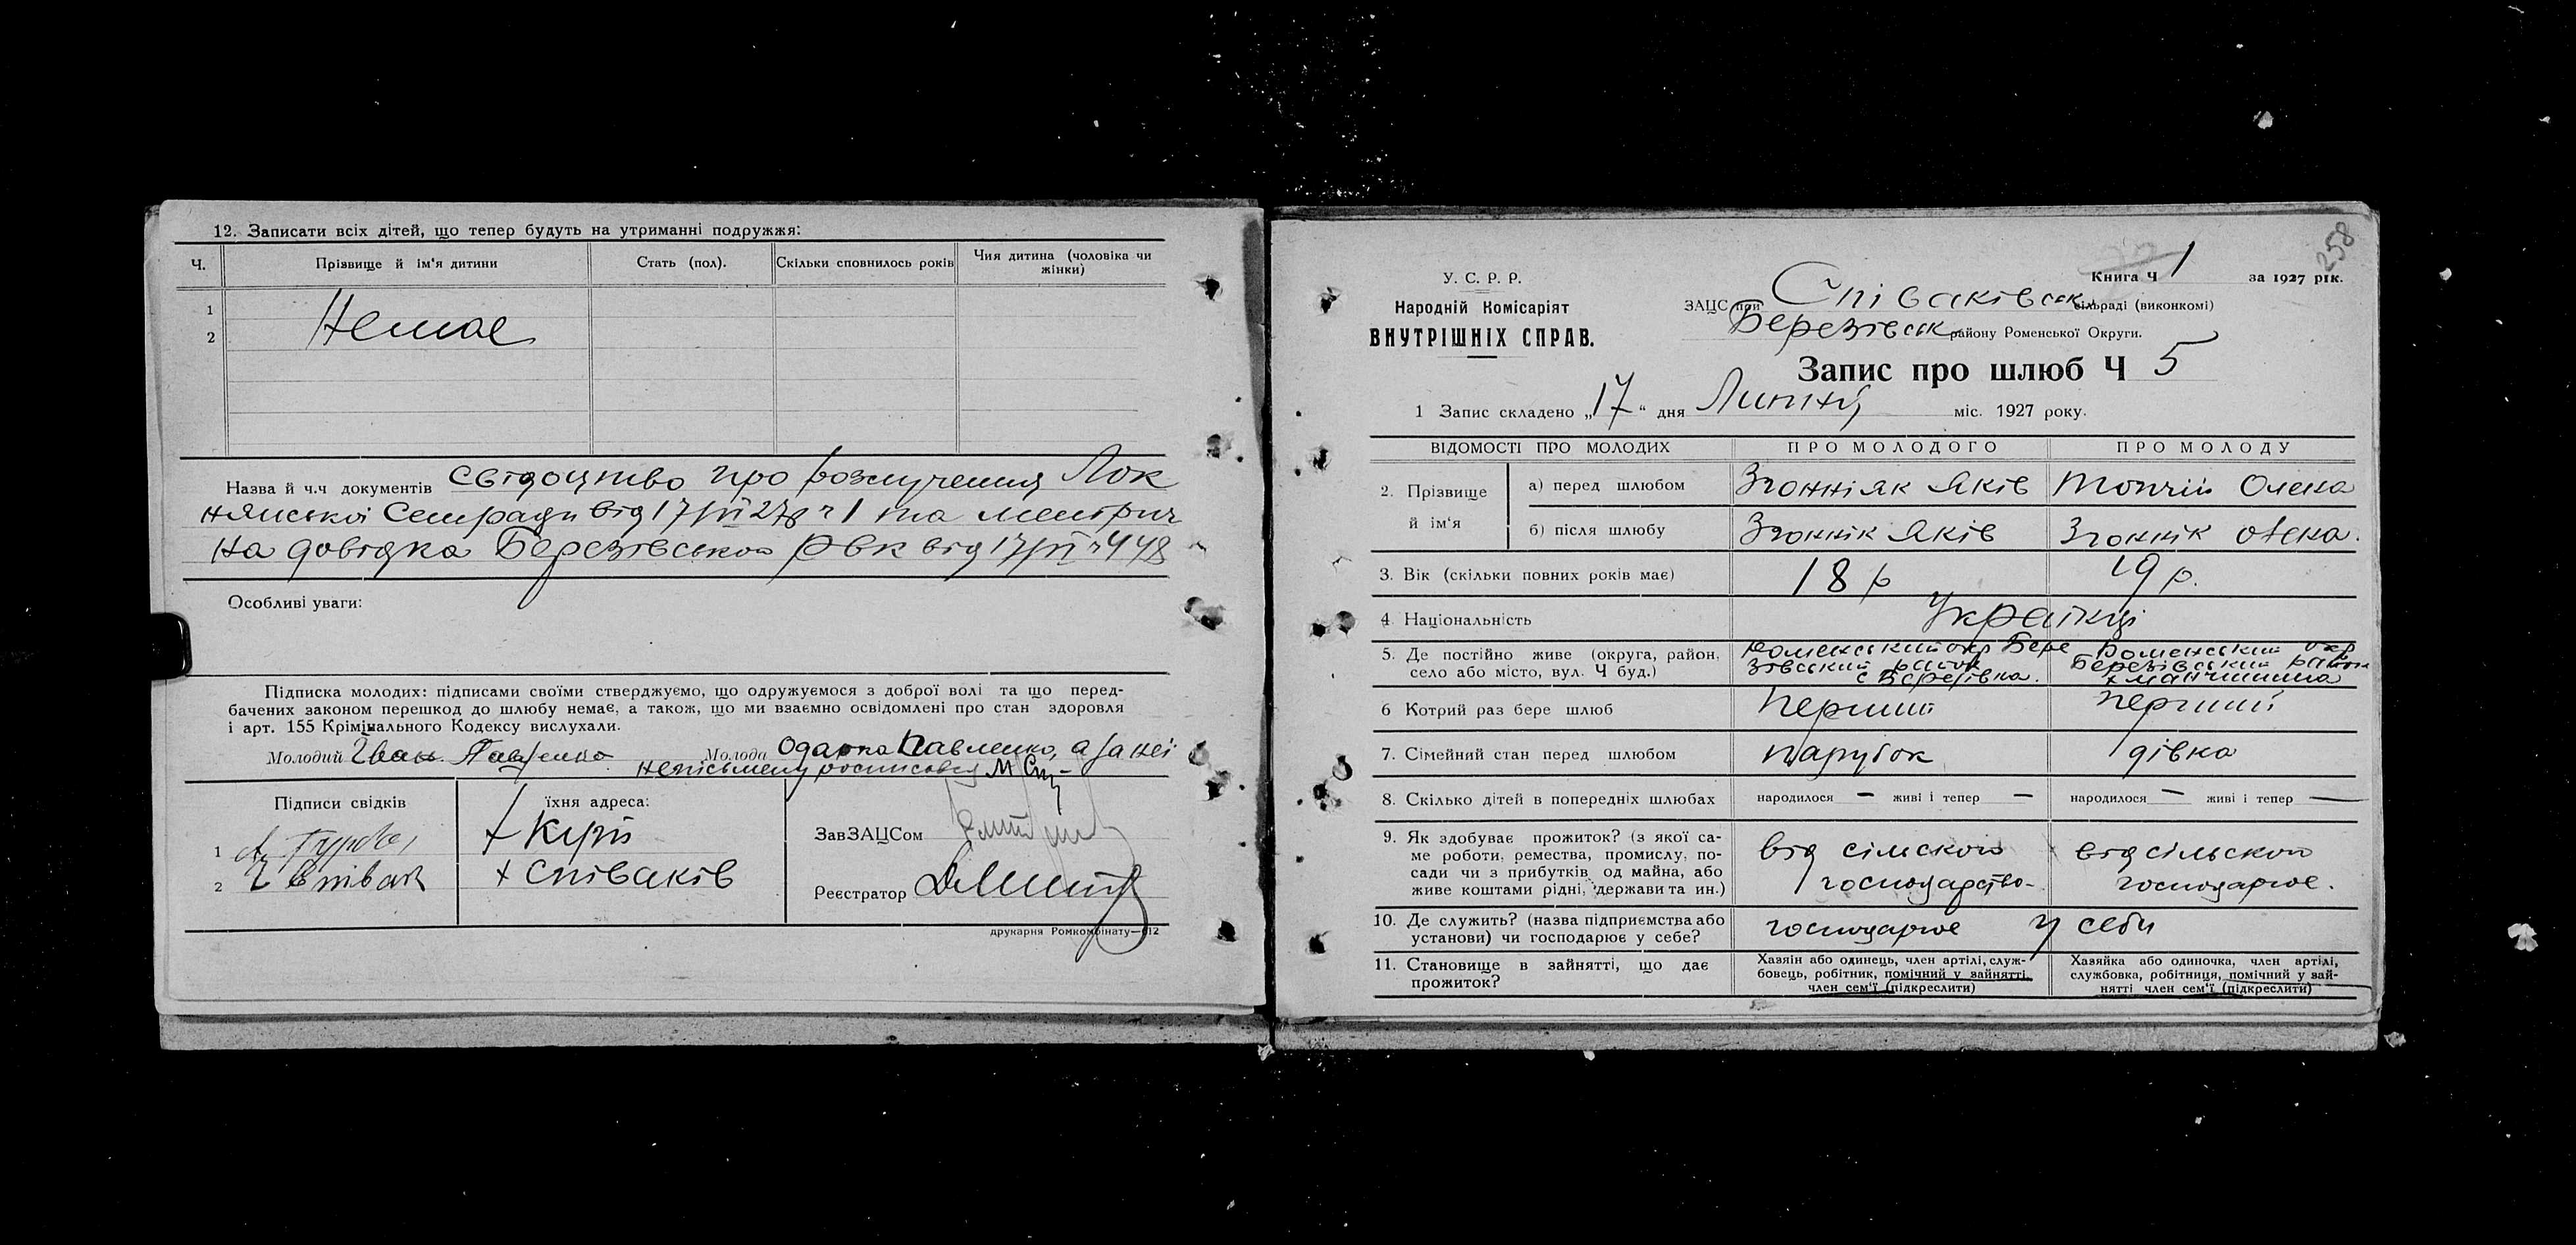 12. Записати всіх дітей, що тепер будуть на утриманні подружжя:
Ч. Прізвище й ім'я дитини Стать (пол). Скільки сповнилось років Чия дитина (чоловіка чи жінки)
1 Немає
2
Назва й ч.ч документів свідоцтво про розлучення Лок
нянської Сельради від 17/VI 27р ч 1 та метрич
на довідка Березівської РВК від 17/VI ч 448
Особливі уваги:
Підписка молодих: підписами своїми стверджуємо, що одружуємося з доброї волі та що перед-
бачених законом перешкод до шлюбу немає, а також, що ми взаємно освідомлені про стан здоровля
і арт. 155 Крімінального Кодексу вислухали.
Молодий Іван Павленко Молода Одарка Павленко, а за неї
неписьмену росписався М
Підписи свідків їхня адреса:
1 х Курп
2 І Співак х Співаків
ЗавЗАЦСом
Реєстратор
друкарня Ромкомбінату—612
258
Книга Ч 1 за 1927 рік.
У. С. Р. Р.
Народній Комісаріят
ВНУТРІШНІХ СПРАВ.
ЗАЦС при Співаківськ сільраді (виконкомі)
Березівськ району Роменської Округи.
Запис про шлюб Ч 5
1 Запис складено „17" дня Липня міс. 1927 року.
ВІДОМОСТІ ПРО МОЛОДИХ ПРО МОЛОДОГО ПРО МОЛОДУ
2. Прізвище й ім'я а) перед шлюбом Згонніяк Яків Топчій Олена
б) після шлюбу Згоннік Яків Згоннік Олена.
3. Вік (скільки повних років має) 18 р 19 р.
4 Національність Українці
5. Де постійно живе (округа, район, Роменський окр Бере Роменський окр
село або місто, вул. Ч буд.) зівський район Березівський район
с Березівка. х
6 Котрий раз бере шлюб Перший перший
7. Сімейний стан перед шлюбом парубок дівка
8. Скілько дітей в попередніх шлюбах народилося — живі і тепер — народилося — живі і тепер —
9. Як здобуває прожиток? (з якої са-
ме роботи, ремества, промислу, по- від сільского від сільского
сади чи з прибутків од майна, або
живе коштами рідні, держави та ин.) господарство- господарює.
10. Де служить? (назва підприємства або
установи) чи господарює у себе? господарює у себи
11. Становище в зайнятті, що дає
прожиток?
Хазяїн або одинець, член артілі, служ-
бовець, робітник, помічний у зайнятті,
член сем'ї (підкреслити)
Хазяйка або одиночка, член артілі,
службовка, робітниця, помічний у зай-
нятті член сем'ї (підкреслити)